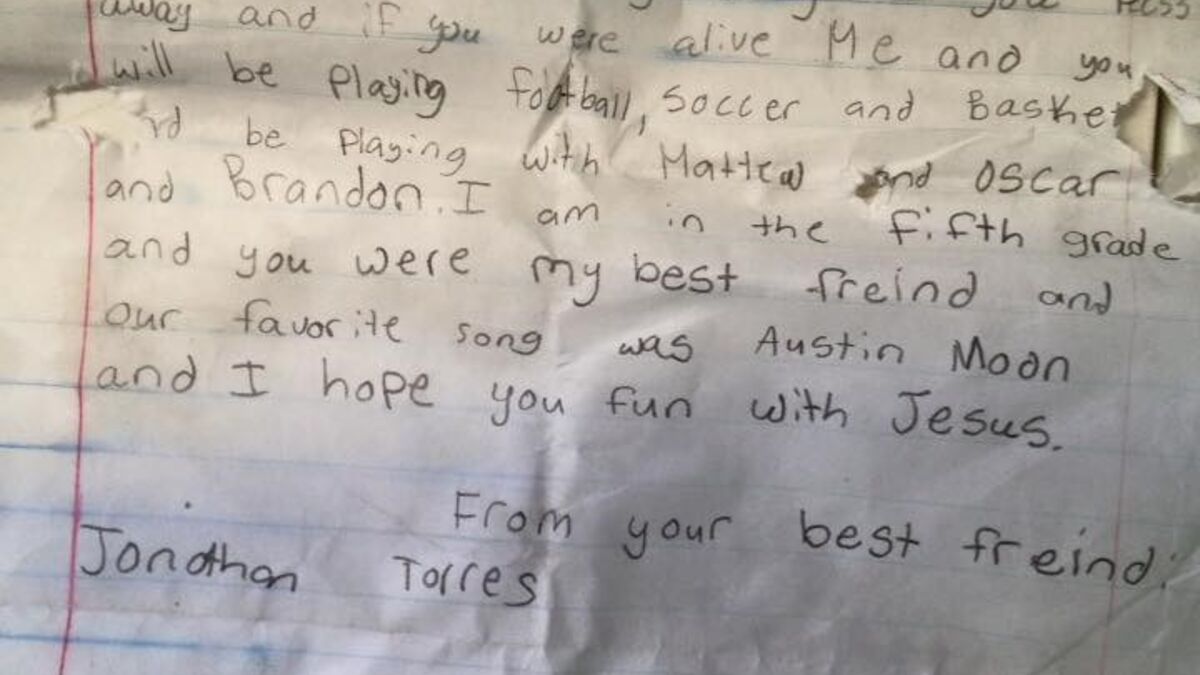 away and if you were alive Me and you
will be playing football, soccer and Basket
be playing with Mattew and Oscar
and Brandon. I am in the fifth grade
and you were my best freind and
our favorite song was Austin Moon
and I hope you fun with Jesus.
From your best freind.
Jonathan Torres